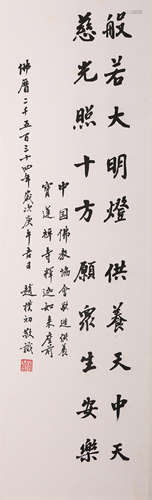 般若大明燈供養天中天
慈光照十方願衆生安樂
中国佛教協會敬造供養
寶蓮禅寺釋迦如来座前
佛曆二千五百三十四年歲次庚午吉日趙樸初敬識